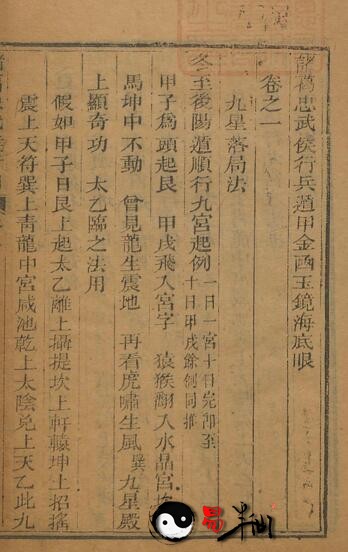 諸葛忠武侯行兵遁甲金函玉鏡海底眼
卷之一
九星落局法
冬至後陽遁順行九宮起例 一日一宮十日完卽至十日甲戌餘倒同推
甲子爲頭起艮 甲戌飛入宮字 猿猴翻入水晶宮坎
馬坤申不動 曾見龍生震地 再看虎嘯生風巽 九星殿
上顯奇功 太乙臨之法用
假如甲子日艮上起太乙離上攝提坎上軒轅坤上招搖
震上天符巽上青龍中宮咸池乾上太陰兌上天乙此九
易半仙